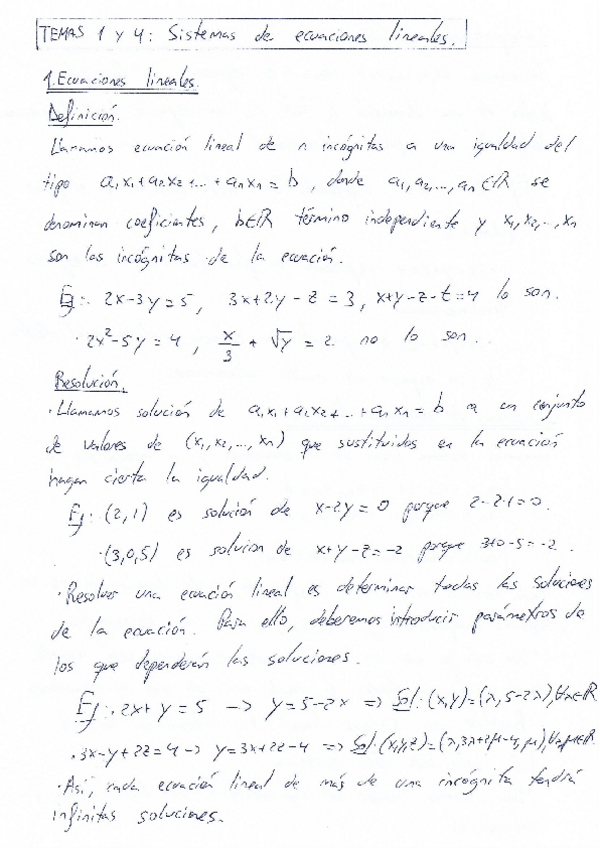 TEMAS 1 y 4: Sistemas de ecuaciones lineales.
1. Ecuaciones lineales.
Definición.
Llamamos ecuación lineal de n incógnitas a una igualdad del
tipo a₁x₁+a₂x₂+...+aₙxₙ=b, donde a₁,a₂,...,aₙ∈ℝ se
denominan coeficientes, b∈ℝ término independiente y x₁,x₂,...,xₙ
son las incógnitas de la ecuación.
Ej:· 2x-3y=5, 3x+2y-z=3, x+y-z-t=4 lo son.
· 2x²-5y=4, x/3 + √y = 2 no lo son.
Resolución.
· Llamamos solución de a₁x₁+a₂x₂+...+aₙxₙ=b a un conjunto
de valores de (x₁,x₂,...,xₙ) que sustituidos en la ecuación
hagan cierta la igualdad.
Ej:·(2,1) es solución de x-2y=0 porque 2-2·1=0.
·(3,0,5) es solución de x+y-z=-2 porque 3+0-5=-2.
· Resolver una ecuación lineal es determinar todas las soluciones
de la ecuación. Para ello, deberemos introducir parámetros de
los que dependerán las soluciones.
Ej:· 2x+y=5 → y=5-2x ⇒ Sol: (x,y)=(λ,5-2λ),∀λ∈ℝ
· 3x-y+2z=4 → y=3x+2z-4 ⇒ Sol: (x,y,z)=(λ,3λ+2μ-4,μ),∀λ,μ∈ℝ
· Así, cada ecuación lineal de más de una incógnita tendrá
infinitas soluciones.